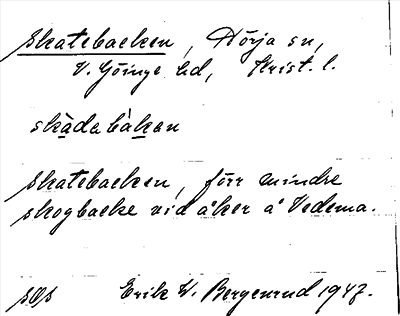 Skatebacken, Hörja sn,
V. Göinge hd, Krist. l.
skàdebàkan
Skatebacken, förr mindre
skogbacke vid åker å Vedema.
Erik W. Bergenrud 1947.